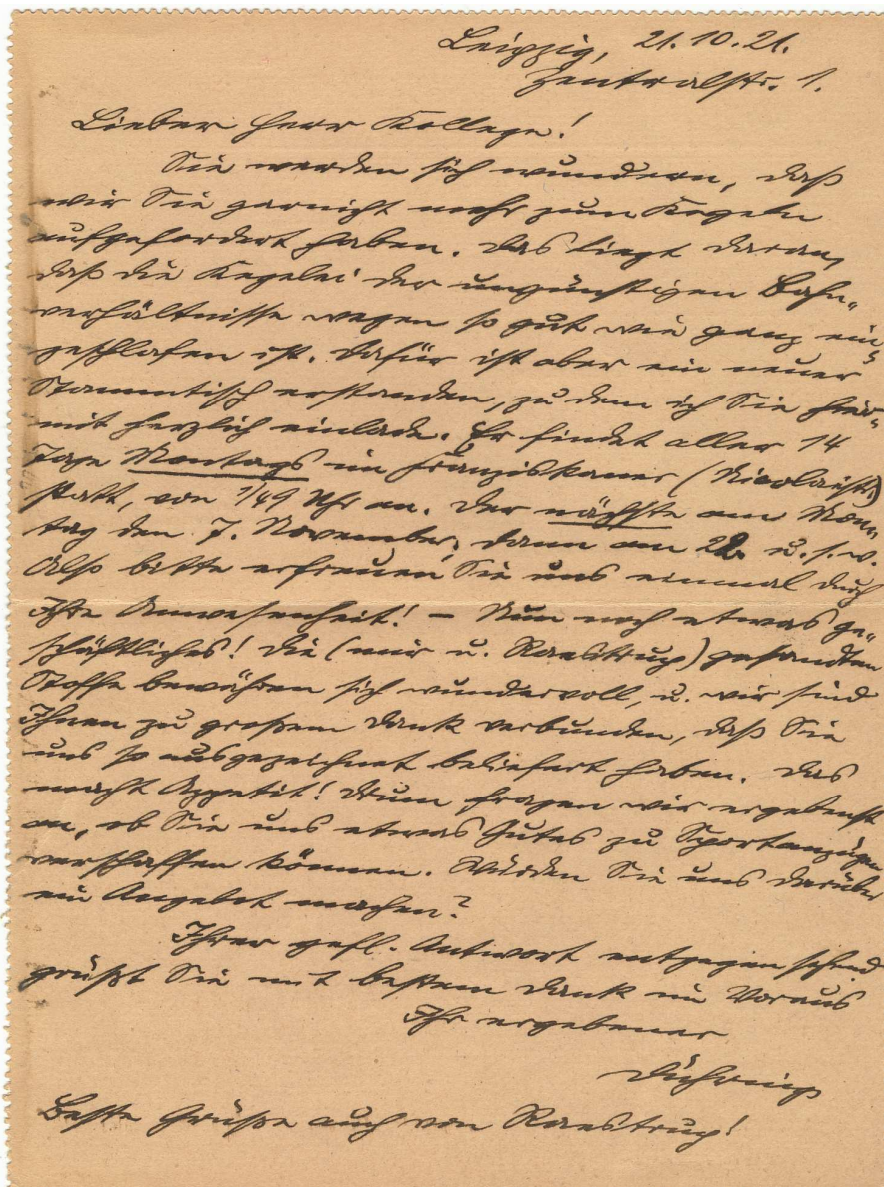 Leipzig, 21. 10. 21.
Zentralstr. 1.
Lieber Herr Kollege!
Sie werden sich wundern, daß
wir Sie garnicht mehr zum Kegeln
aufgefordert haben. Das liegt daran,
daß die Kegelei der ungünstigen Bahn-
verhältnisse wegen so gut wie ganz ein-
geschlafen ist. Dafür ist aber ein neuer
Stammtisch erstanden, zu dem ich Sie hier-
mit herzlich einlade. Er findet aller 14
Tage Montags im Franziskaner (Nicolaistr.)
statt, von 1/49 Uhr an. Der nächste am Mon-
tag den 7. November, dann am 22. u. s. w.
Also bitte erfreuen Sie uns einmal durch
Ihre Anwesenheit! – Nun noch etwas ge-
schäftliches! Die (mir u. Raestrup) gesandten
Stoffe bewähren sich wundervoll, u. wir sind
Ihnen zu großem Dank verbunden, daß Sie
uns so ausgezeichnet beliefert haben. Das
macht Appetit! Drum fragen wir ergebenst
an, ob Sie uns etwas Gutes zu Sportanzügen
verschaffen können. Würden Sie uns darüber
ein Angebot machen?
Ihrer gefl. Antwort entgegen sehend
grüßt Sie mit bestem Dank im Voraus
Ihr ergebener
Dühring
Beste Grüße auch von Raestrup!